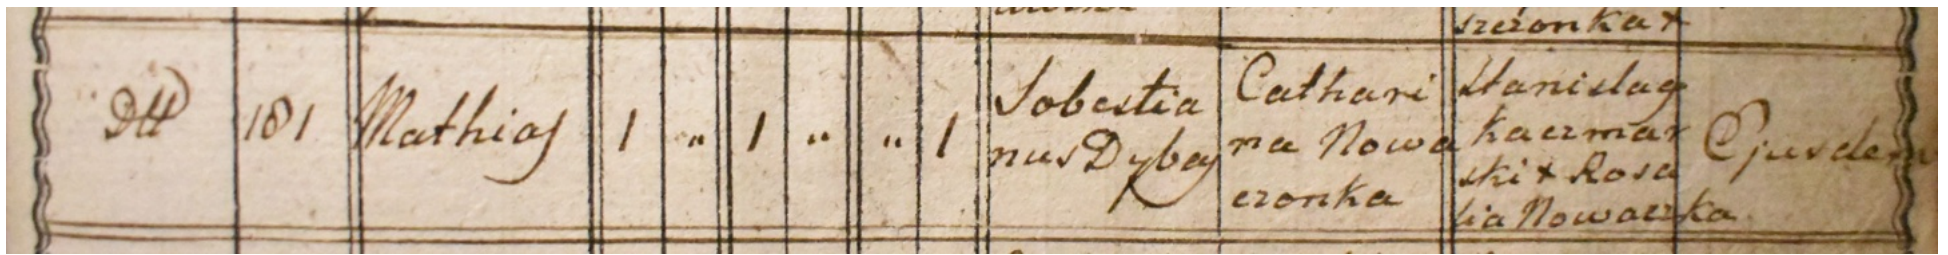 szczonka +
Dtt 181 Mathias 1 " 1 " " 1
Sobestia
nus Dybas
Cathari
na Nowa
czonka
Stanislag
Kaczmar
ski + Rosa
lia Nowaczka
Ejusdem